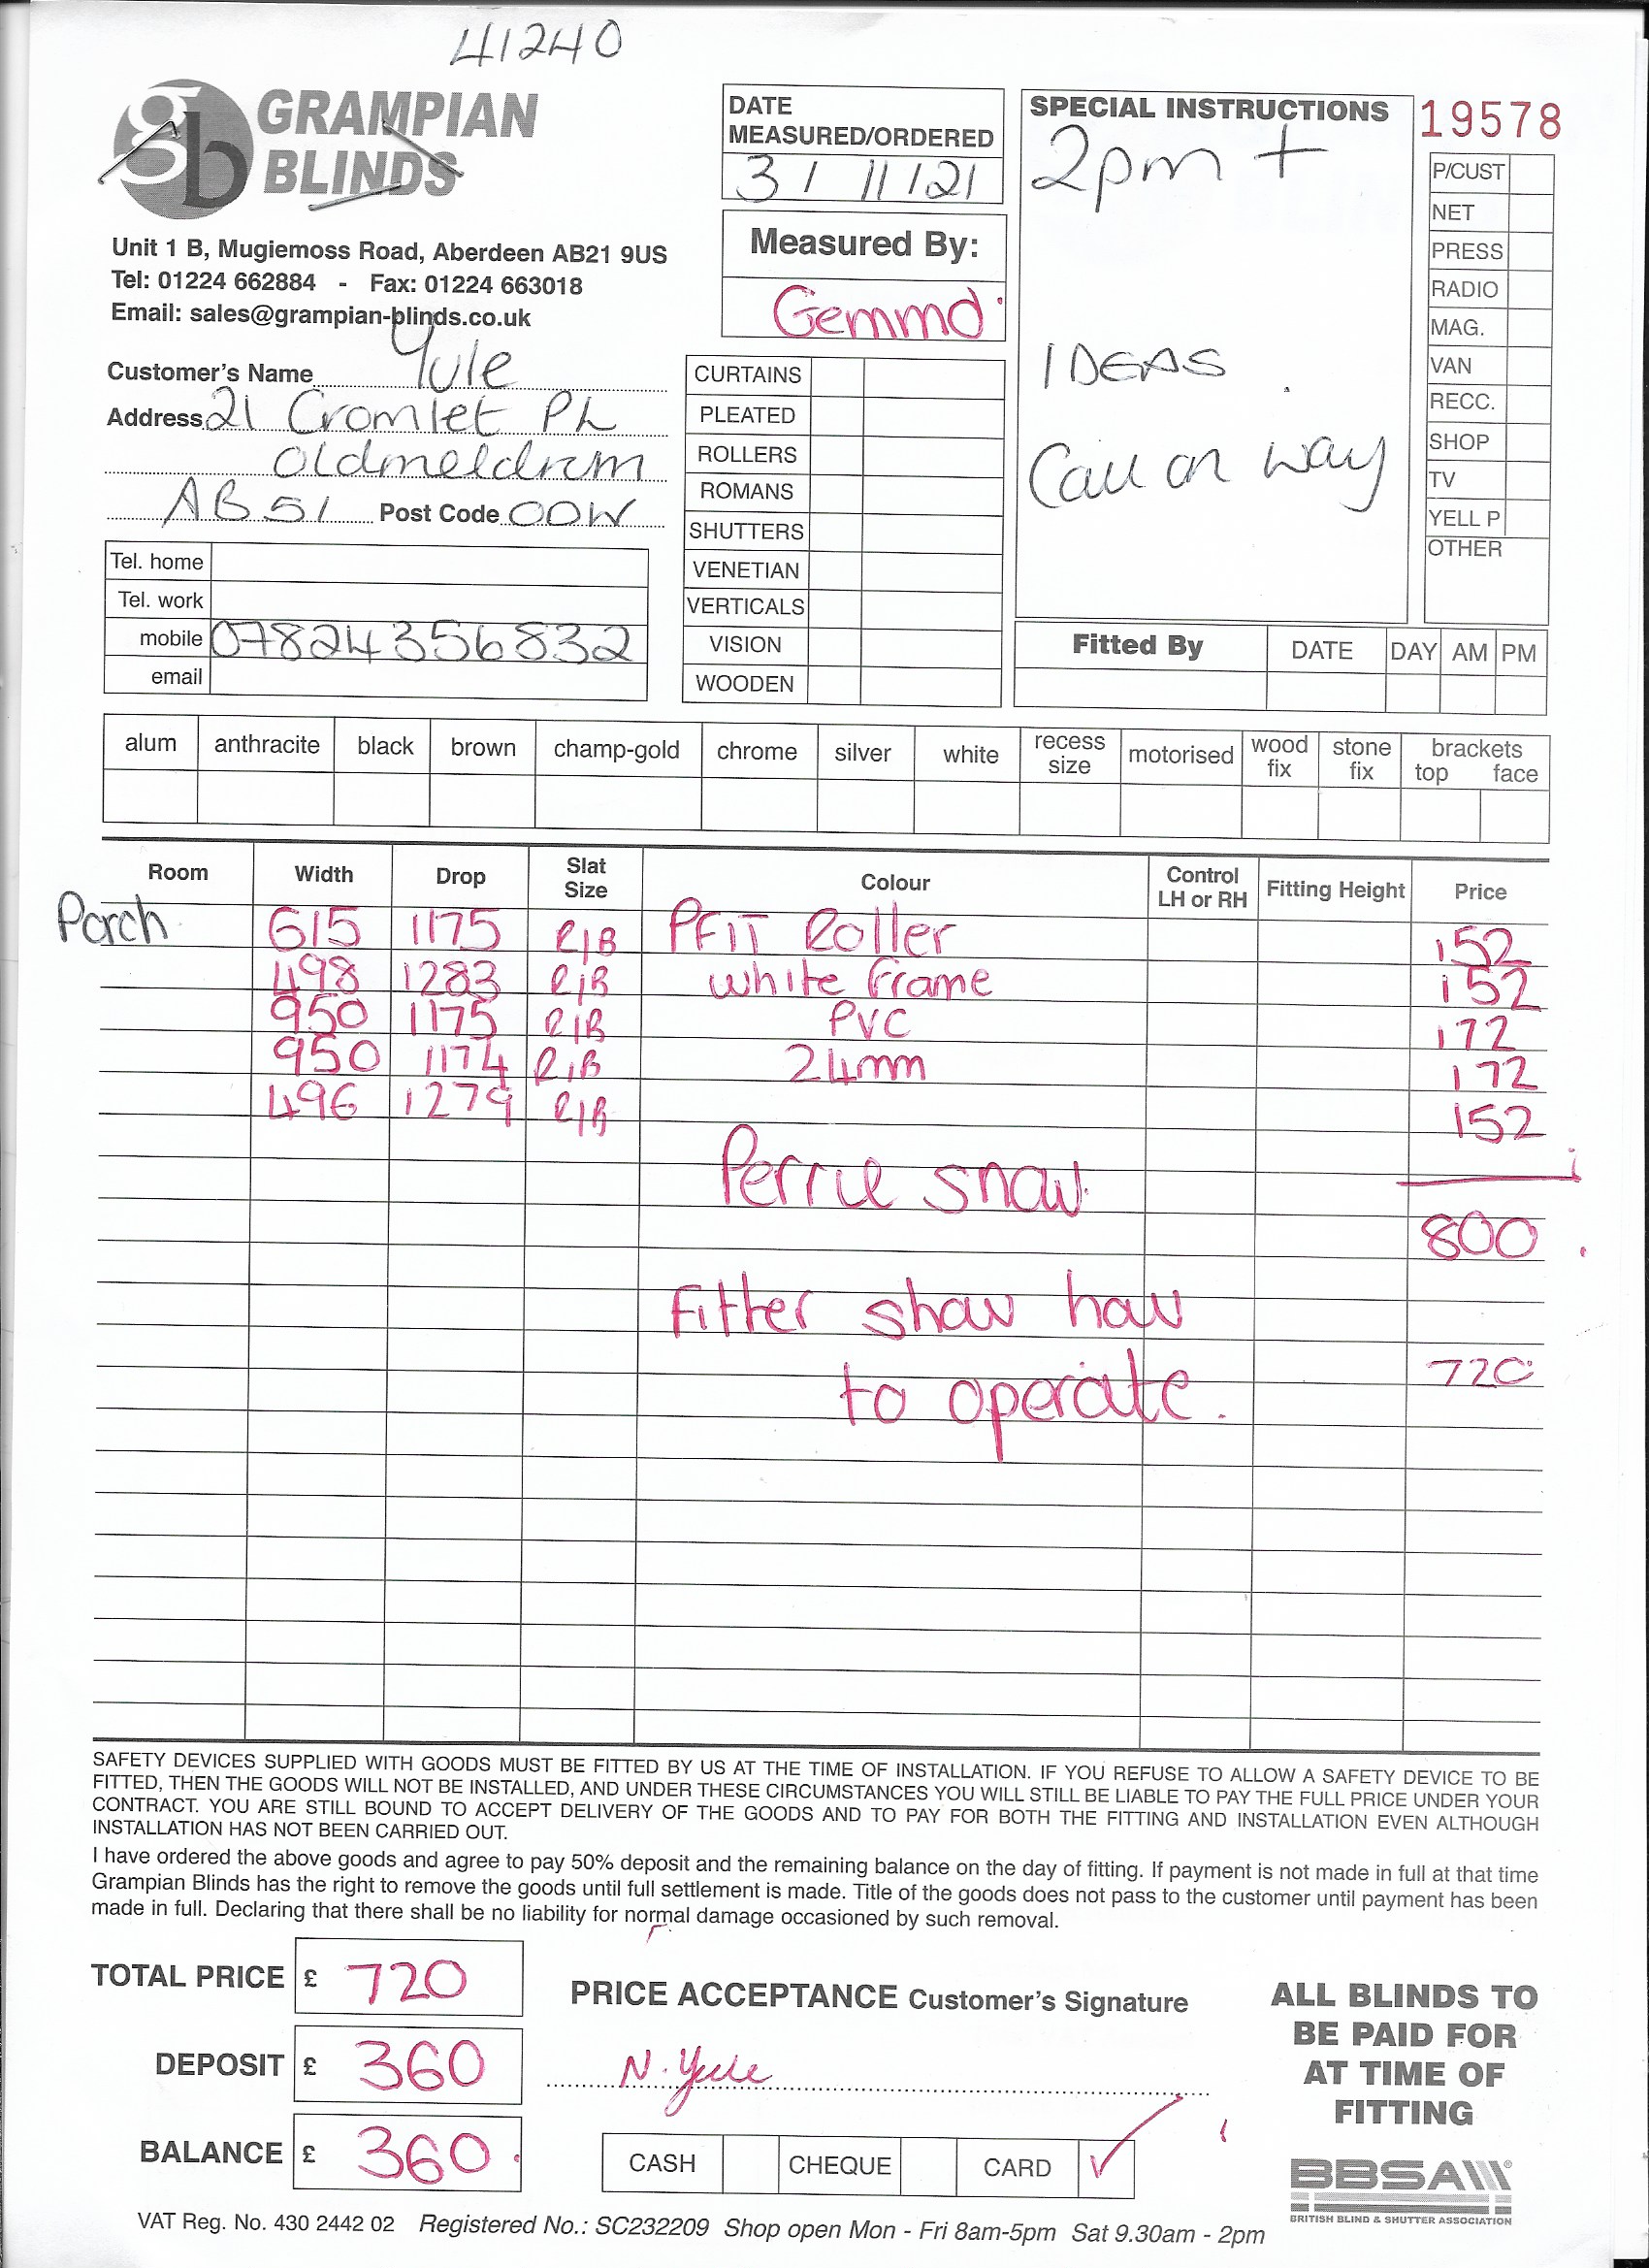 41240
GRAMPIAN
BLINDS
gb
Unit 1 B, Mugiemoss Road, Aberdeen AB21 9US
Tel: 01224 662884 - Fax: 01224 663018
Email: sales@grampian-blinds.co.uk
Customer's Name Yule
Address 21 Cromlet PL
Oldmeldrum
AB51 Post Code 0DW
Tel. home
Tel. work
mobile 07824356832
email
DATE
MEASURED/ORDERED
3 / 11 / 21
Measured By:
Gemma
CURTAINS
PLEATED
ROLLERS
ROMANS
SHUTTERS
VENETIAN
VERTICALS
VISION
WOODEN
SPECIAL INSTRUCTIONS
2pm +
IDEAS
Call on way
19578
P/CUST
NET
PRESS
RADIO
MAG.
VAN
RECC.
SHOP
TV
YELL P
OTHER
Fitted By DATE DAY AM PM
alum anthracite black brown champ-gold chrome silver white recess size motorised wood fix stone fix brackets top face
Room Width Drop Slat Size Colour Control LH or RH Fitting Height Price
Porch 615 1175 R/B PFIT Roller 152
498 1283 R/B white frame 152
950 1175 R/B PVC 172
950 1174 R/B 24mm 172
496 1279 R/B 152
Perrie snow
800
Fitter show how
to operate.
720
SAFETY DEVICES SUPPLIED WITH GOODS MUST BE FITTED BY US AT THE TIME OF INSTALLATION. IF YOU REFUSE TO ALLOW A SAFETY DEVICE TO BE
FITTED, THEN THE GOODS WILL NOT BE INSTALLED, AND UNDER THESE CIRCUMSTANCES YOU WILL STILL BE LIABLE TO PAY THE FULL PRICE UNDER YOUR
CONTRACT. YOU ARE STILL BOUND TO ACCEPT DELIVERY OF THE GOODS AND TO PAY FOR BOTH THE FITTING AND INSTALLATION EVEN ALTHOUGH
INSTALLATION HAS NOT BEEN CARRIED OUT.
I have ordered the above goods and agree to pay 50% deposit and the remaining balance on the day of fitting. If payment is not made in full at that time
Grampian Blinds has the right to remove the goods until full settlement is made. Title of the goods does not pass to the customer until payment has been
made in full. Declaring that there shall be no liability for normal damage occasioned by such removal.
TOTAL PRICE £ 720
DEPOSIT £ 360
BALANCE £ 360.
PRICE ACCEPTANCE Customer's Signature
N. Yule
CASH CHEQUE CARD ✓
ALL BLINDS TO
BE PAID FOR
AT TIME OF
FITTING
BBSA
BRITISH BLIND & SHUTTER ASSOCIATION
VAT Reg. No. 430 2442 02 Registered No.: SC232209 Shop open Mon - Fri 8am-5pm Sat 9.30am - 2pm